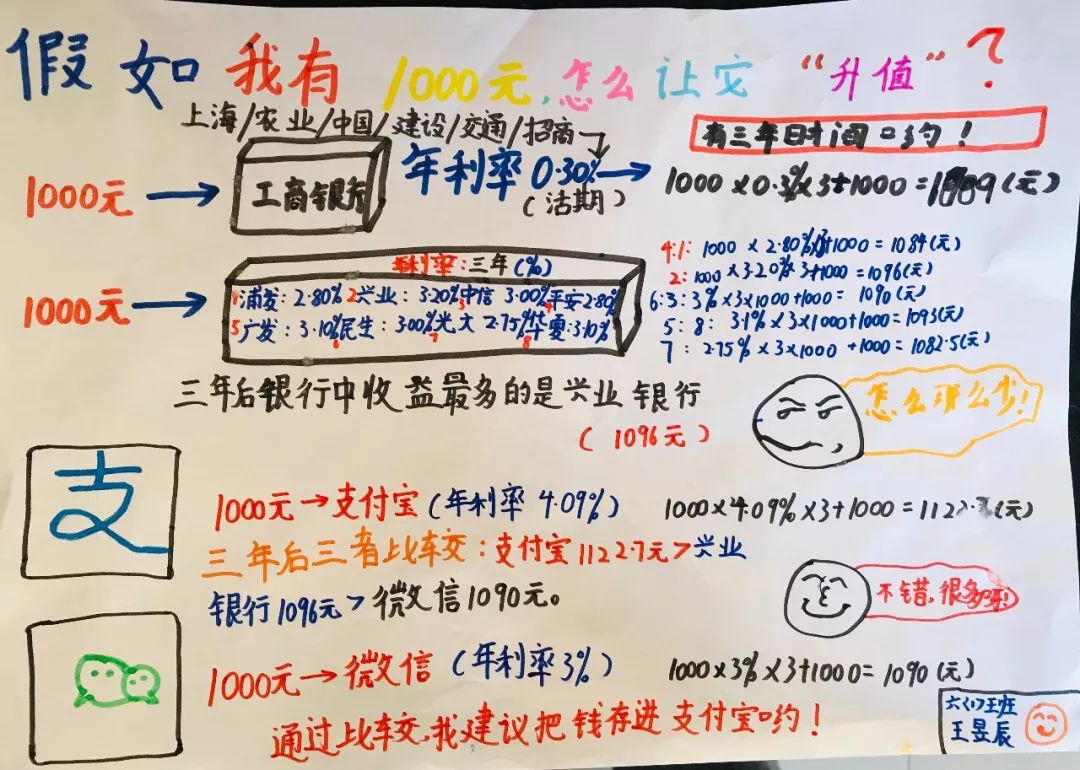 假如我有1000元,怎么让它“升值”?
上海/农业/中国/建设/交通/招商
有三年时间哟!
1000元
工商银行
年利率0.30%
(活期)
1000×0.3%×3+1000=1009(元)
1000元
年利率:三年(%)
1浦发:2.80% 2兴业:3.20% 3中信 3.00% 4平安2.80%
5广发:3.10% 6民生:3.00% 7光大 2.75% 8华夏:3.10%
4.1:1000×2.80%×3+1000=1084(元)
2:1000×3.20%×3+1000=1096(元)
6:3:3%×3×1000+1000=1090(元)
5:8:3.1%×3×1000+1000=1093(元)
7:2.75%×3×1000+1000=1082.5(元)
三年后银行中收益最多的是兴业银行
(1096元)
怎么那么少!
支
1000元→支付宝(年利率4.09%)
1000×4.09%×3+1000=1122.7(元)
三年后三者比较:支付宝1122.7元>兴业
银行1096元>微信1090元。
不错,很多嘛!
1000元→微信(年利率3%)
1000×3%×3+1000=1090(元)
通过比较,我建议把钱存进支付宝哟!
六(1)班
王昱辰